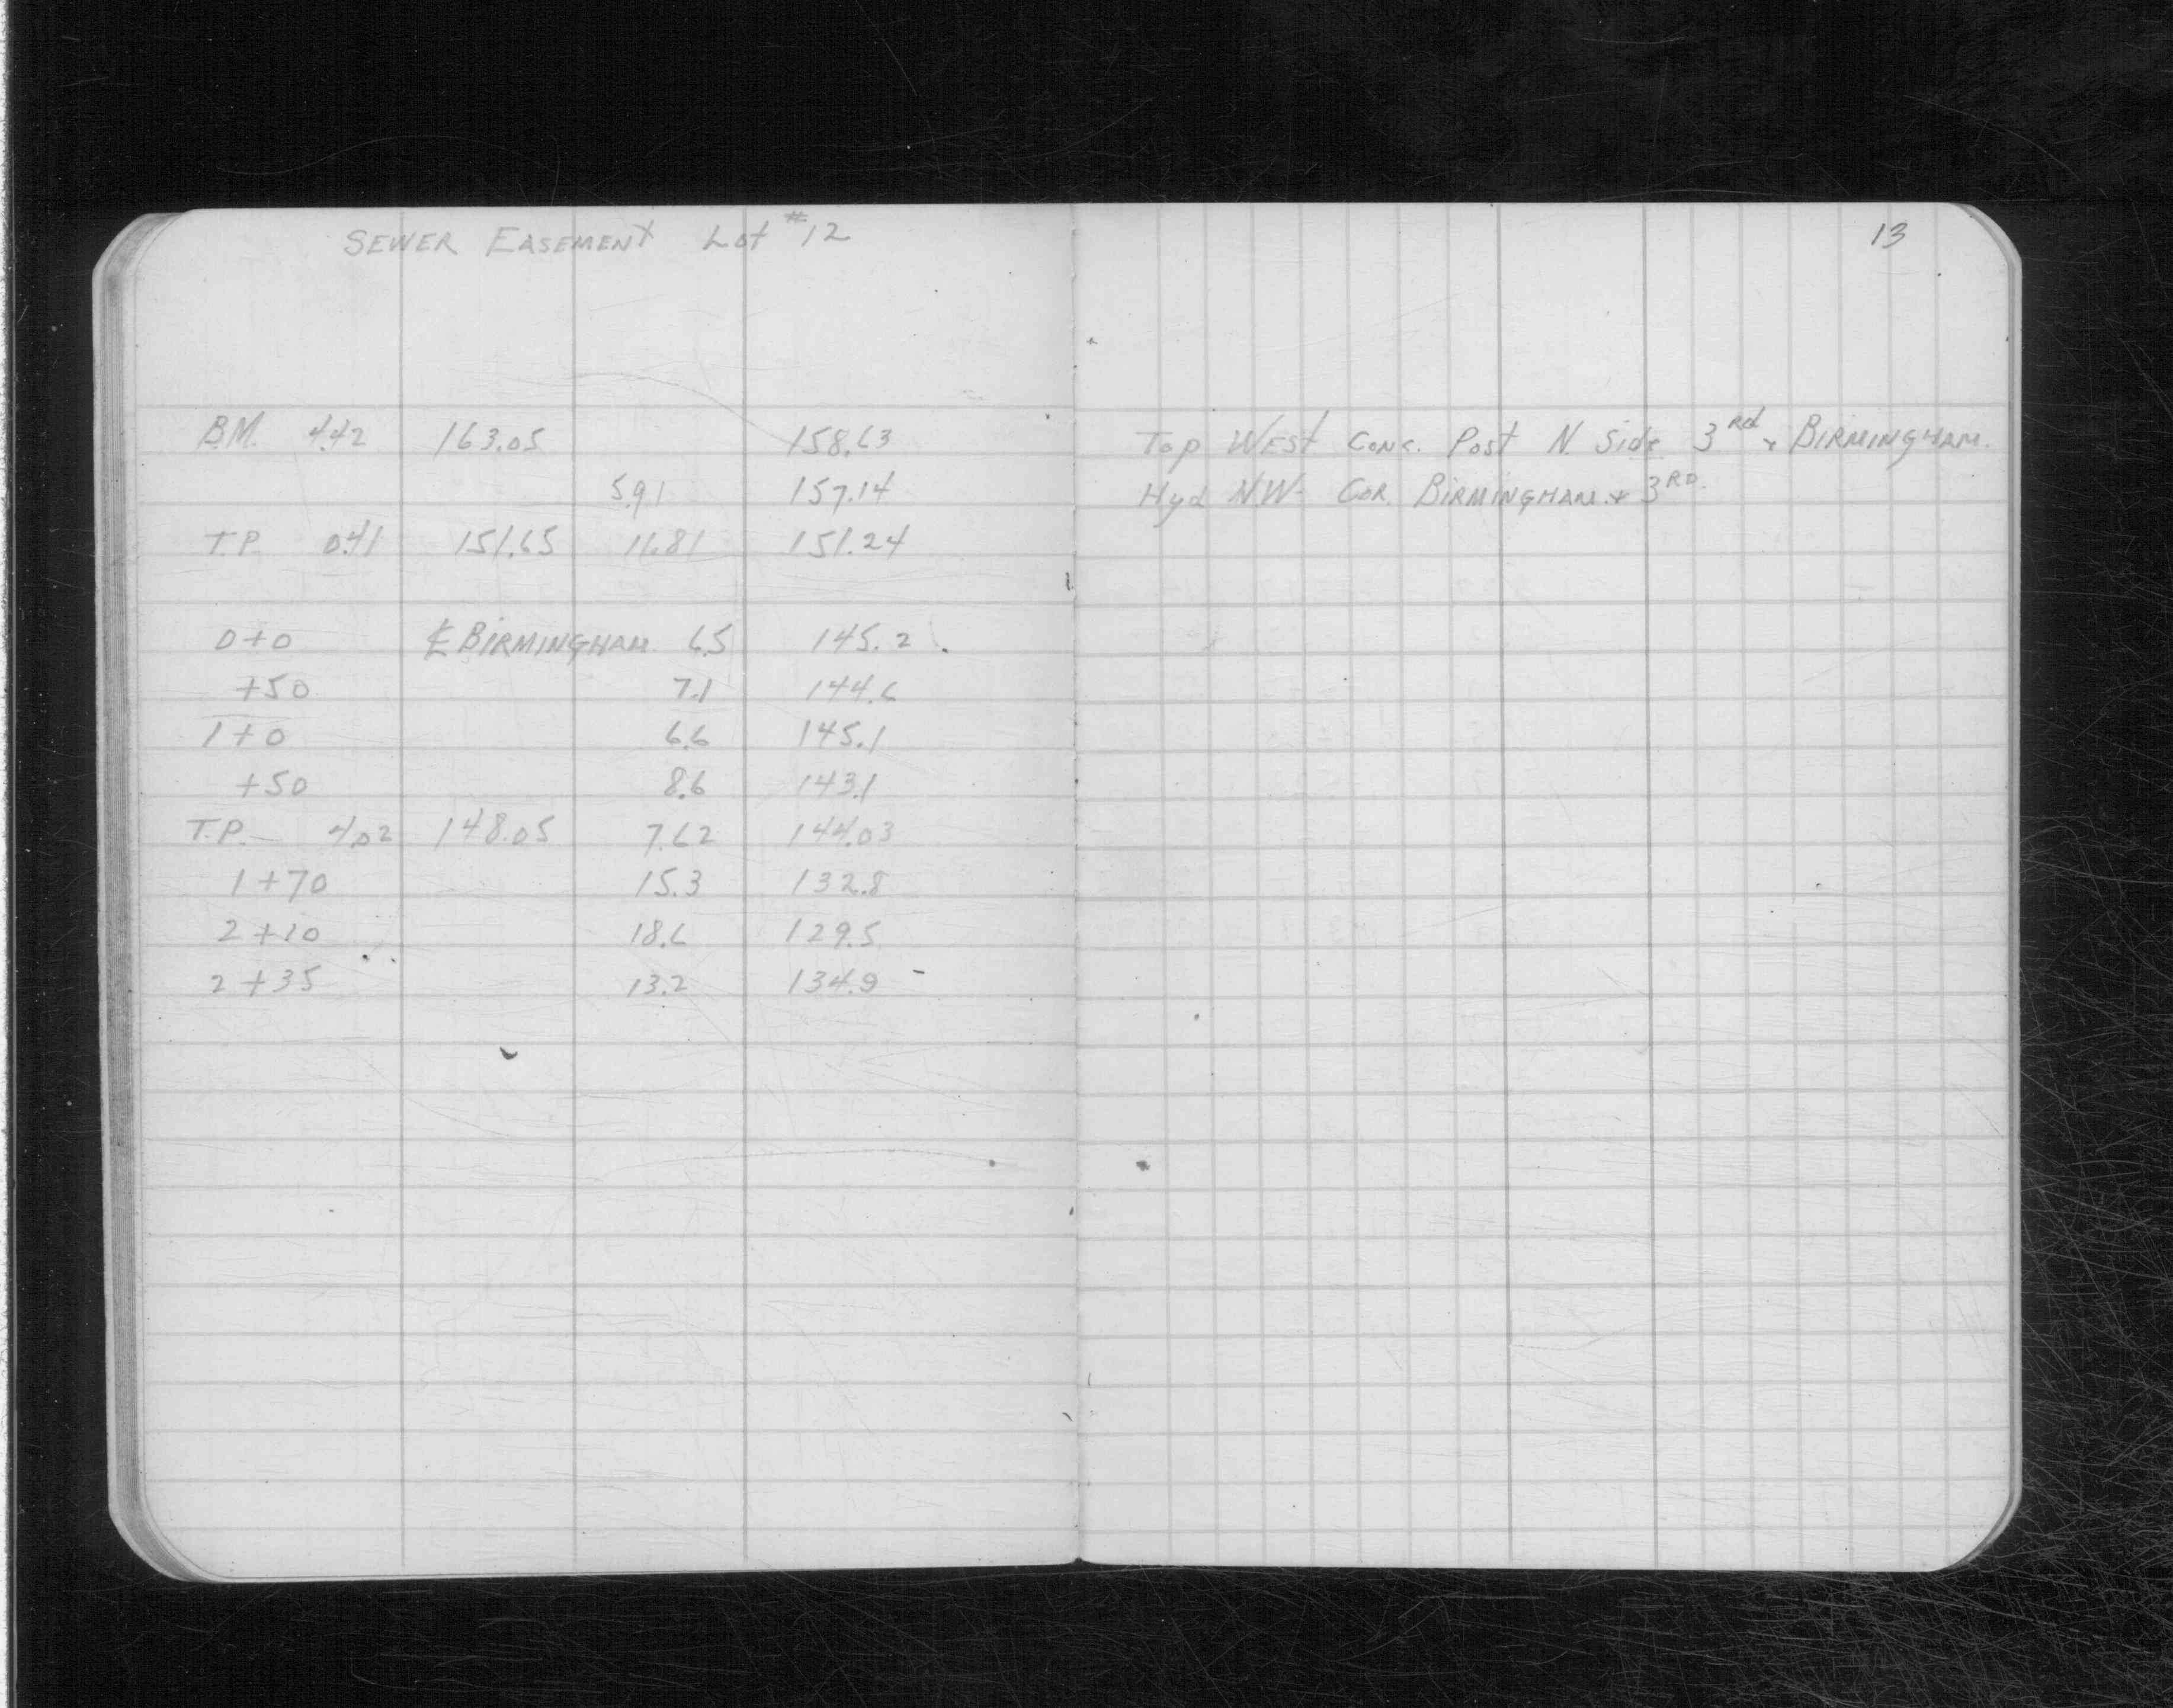 SEWER EASEMENT Lot #12
13
B.M. 4.42 163.05 158.63 Top WEST CONC. Post N. Side 3rd & BIRMINGHAM.
5.91 157.14 Hyd NW. COR. BIRMINGHAM & 3RD.
T.P. 0.41 151.65 11.81 151.24
0+0 ℄ BIRMINGHAM 6.5 145.2
+50 7.1 144.6
1+0 6.6 145.1
+50 8.6 143.1
T.P. 4.02 148.05 7.62 144.03
1+70 15.3 132.8
2+10 18.6 129.5
2+35 13.2 134.9